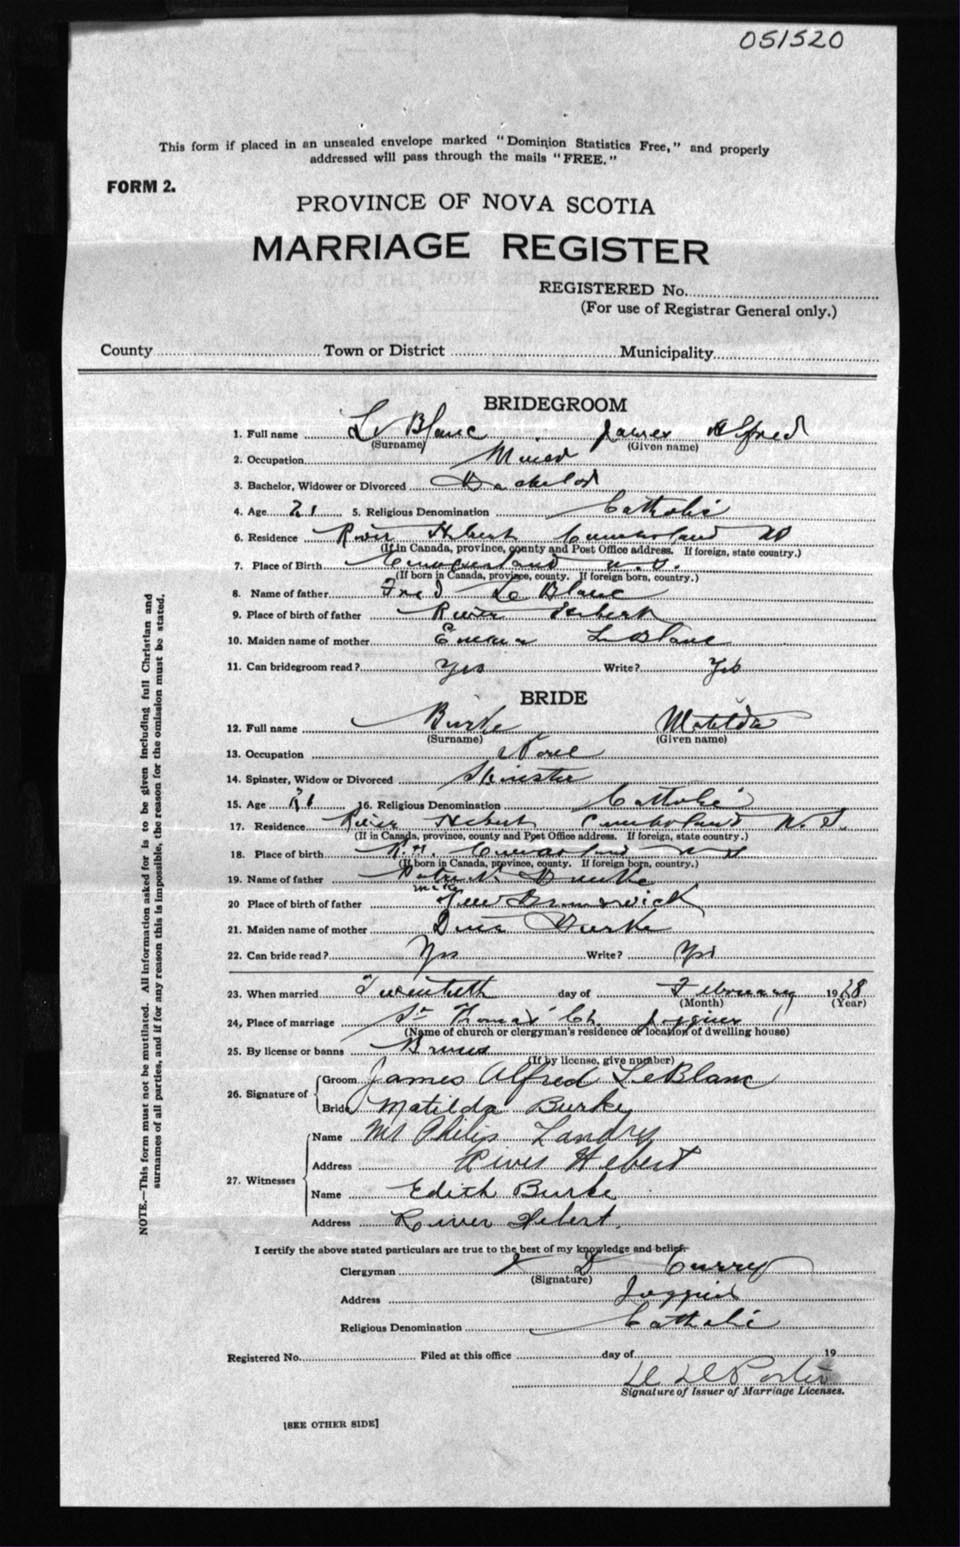 051520
This form if placed in an unsealed envelope marked "Dominion Statistics Free," and properly
addressed will pass through the mails "FREE."
FORM 2.
PROVINCE OF NOVA SCOTIA
MARRIAGE REGISTER
REGISTERED No.
(For use of Registrar General only.)
County Town or District Municipality
BRIDEGROOM
1. Full name Le Blanc James Alfred
(Surname) (Given name)
2. Occupation Miner
3. Bachelor, Widower or Divorced Bachelor
4. Age 21 5. Religious Denomination Catholic
6. Residence River Hebert Cumberland NS
(If in Canada, province, county and Post Office address. If foreign, state country.)
7. Place of Birth Cumberland N.S.
(If born in Canada, province, county. If foreign born, country.)
8. Name of father Fred Le Blanc
9. Place of birth of father River Hebert
10. Maiden name of mother Emma LeBlanc
11. Can bridegroom read? Yes Write? Yes
BRIDE
12. Full name Burke Matilda
(Surname) (Given name)
13. Occupation None
14. Spinster, Widow or Divorced Spinster
15. Age 21 16. Religious Denomination Catholic
17. Residence River Hebert Cumberland N.S.
(If in Canada, province, county and Post Office address. If foreign, state country.)
18. Place of birth R.H. Cumberland NS
(If born in Canada, province, county. If foreign born, country.)
19. Name of father Burke
20 Place of birth of father New Brunswick
21. Maiden name of mother Burke
22. Can bride read? Yes Write? Yes
23. When married Twentieth day of February 1928
(Month) (Year)
24, Place of marriage St Thomas' Ch. Joggins
(Name of church or clergyman's residence or location of dwelling house)
25. By license or banns Banns
(If by license, give number)
26. Signature of Groom James Alfred LeBlanc
Bride Matilda Burke
27. Witnesses Name Mr Philip Landry
Address River Hebert
Name Edith Burke
Address River Hebert.
I certify the above stated particulars are true to the best of my knowledge and belief.
Clergyman D Curry
(Signature)
Address Joggins
Religious Denomination Catholic
Registered No. Filed at this office day of 19
Porter
Signature of Issuer of Marriage Licenses.
[SEE OTHER SIDE]
NOTE.—This form must not be mutilated. All information asked for is to be given including full Christian and
surnames of all parties, and if for any reason this is impossible, the reason for the omission must be stated.